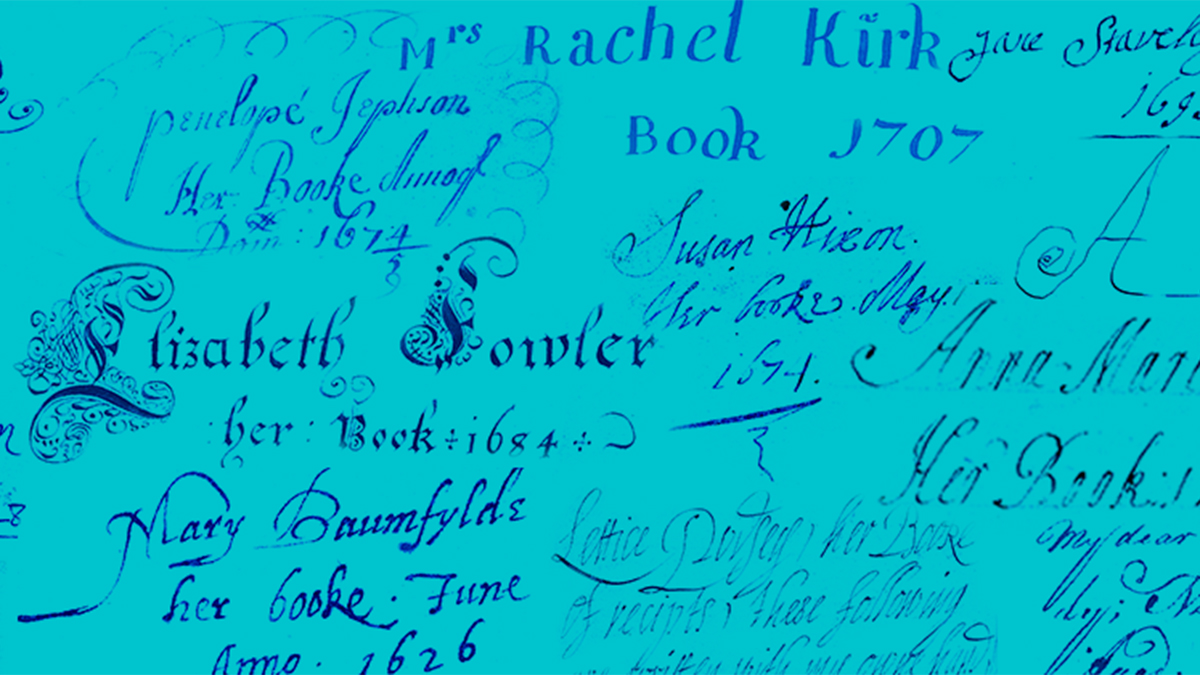 Mrs Rachel Kirk
Book 1707
Jane Stavely
169
Penelope Jephson
Her Booke Annoqe
Dom: 1674
5
Susan Hixon.
Her booke May.
1674.
A
Elizabeth Fowler
her: Book÷1684÷
Anna-Mari
Her Book:s
Mary Baumfylde
her booke. June
Anno. 1626
Lettice her Booke
of recipts, these following
are written with my owne hand
My dear
8